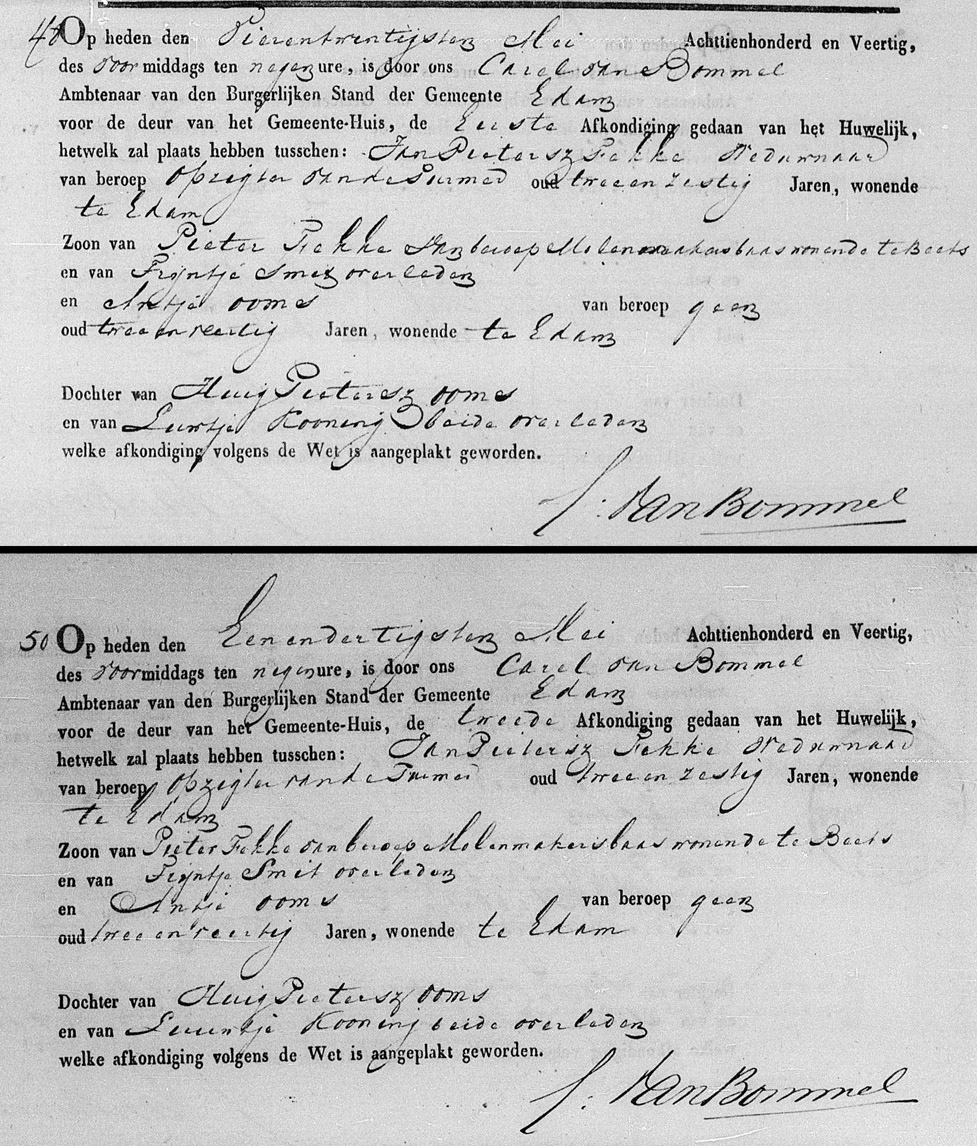 48 Op heden den Vierentwentigsten Mei Achttienhonderd en Veertig,
des voormiddags ten negenure, is door ons Carel van Bommel
Ambtenaar van den Burgerlijken Stand der Gemeente Edam
voor de deur van het Gemeente-Huis, de Eerste Afkondiging gedaan van het Huwelijk,
hetwelk zal plaats hebben tusschen: Jan Pietersz Fekke Weduwnaar
van beroep Opzigter van de Purmer oud twee en zestig Jaren, wonende
te Edam
Zoon van Pieter Fekke van beroep Molenmakersbaas wonende te Beets
en van Trijntje Smit overleden
en Antje Ooms van beroep geen
oud twee en veertig Jaren, wonende te Edam
Dochter van Huig Pietersz Ooms
en van Leuntje Kooning beide overleden
welke afkondiging volgens de Wet is aangeplakt geworden.
C: Van Bommel
50 Op heden den Eenendertigsten Mei Achttienhonderd en Veertig,
des voormiddags ten negenure, is door ons Carel van Bommel
Ambtenaar van den Burgerlijken Stand der Gemeente Edam
voor de deur van het Gemeente-Huis, de tweede Afkondiging gedaan van het Huwelijk,
hetwelk zal plaats hebben tusschen: Jan Pietersz Fekke Weduwnaar
van beroep Opzigter van de Purmer oud twee en zestig Jaren, wonende
te Edam
Zoon van Pieter Fekke van beroep Molenmakersbaas wonende te Beets
en van Trijntje Smit overleden
en Antje Ooms van beroep geen
oud twee en veertig Jaren, wonende te Edam
Dochter van Huig Pietersz Ooms
en van Leuntje Kooning beide overleden
welke afkondiging volgens de Wet is aangeplakt geworden.
C: Van Bommel